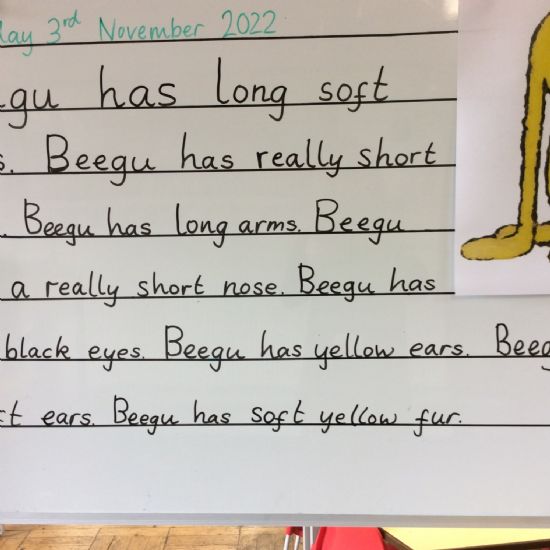 3rd November 2022
has long soft
Beegu has really short
Beegu has long arms. Beegu
a really short nose. Beegu has
black eyes. Beegu has yellow ears.
ears. Beegu has soft yellow fur.